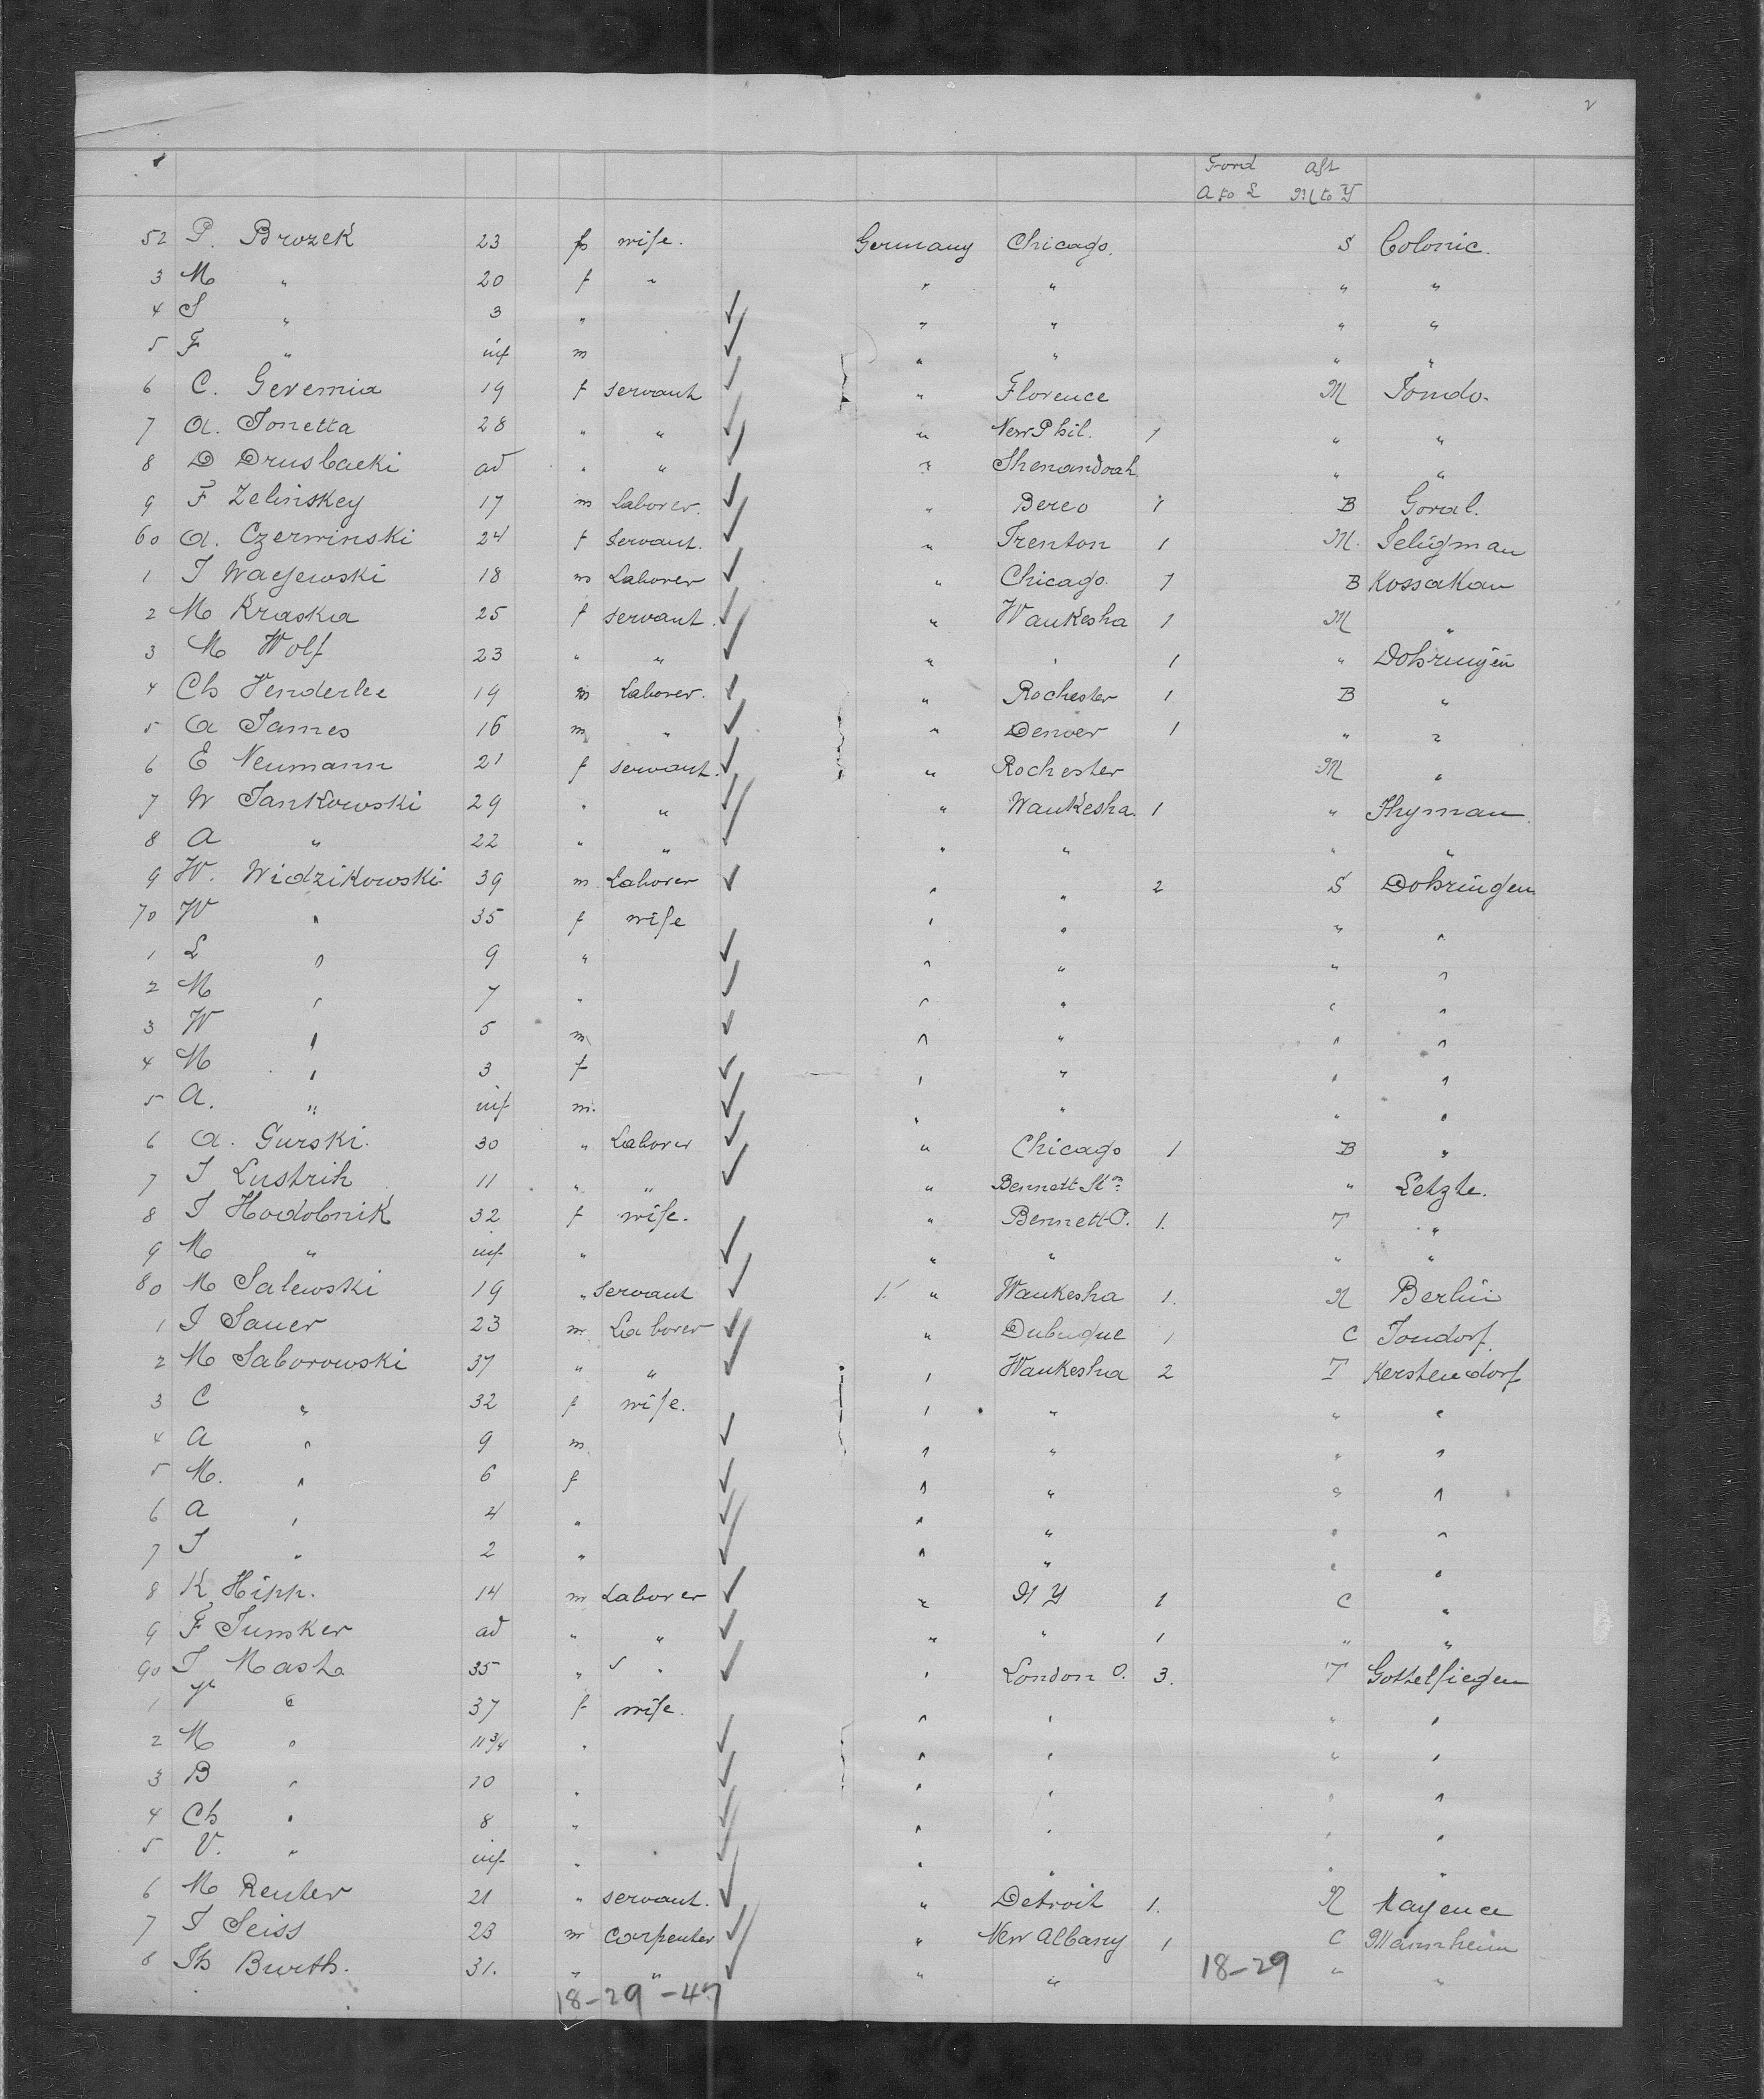 Ford Aft
A to L M to Y
52 P. Brozek 23 f wife. Germany Chicago. S Colonie.
3 M " 20 f " " " " "
4 S " 3 " " " " "
5 F " inf m " " " "
6 C. Geremia 19 f servant " Florence M Tomdo.
7 A. Tonetta 28 " " " New Phil. 1 " "
8 D Drusbacki ad " " " Shenandoah " "
9 F Zelinskey 17 m Laborer. " Bereo 1 B Goral.
60 A. Czerwinski 24 f Servant. " Trenton 1 M. Seligman
1 J Waejewski 18 m Laborer " Chicago 1 B Kossakau
2 M Kraska 25 f servant. " Waukesha 1 M "
3 M Wolf 23 " " " " 1 " Dohringen
4 Ch Venderlee 19 m Laborer. " Rochester 1 B "
5 A James 16 m " " Denver 1 " "
6 E Neumann 21 f servant. " Rochester M "
7 W Jankowski 29 " " " Waukesha. 1 " Thyman.
8 A " 22 " " " " " "
9 W. Widzikowski 39 m Laborer " " 2 S Dohringen
70 W " 35 f wife " " " "
1 L " 9 " " " " "
2 M " 7 " " " " "
3 W " 5 m " " " "
4 M " 3 f " " " "
5 A. " inf m. " " " "
6 A. Gurski. 30 " Laborer " Chicago 1 B "
7 J Lustrik 11 " " " Bennett Stn " Letzte.
8 J Hodobnik 32 f wife. " Bennett O. 1. T "
9 M " inf " " " " "
80 M Salewski 19 " servant 1 " Waukesha 1. M Berlin
1 J Sauer 23 m Laborer " Dubuque 1 C Tondorf.
2 M Saborowski 37 " " " Waukesha 2 T Kerstendorf
3 C " 32 f wife. " " " "
4 A " 9 m " " " "
5 M. " 6 f " " " "
6 A " 4 " " " " "
7 J " 2 " " " " "
8 K Hipp. 14 m Laborer " N Y 1 C "
9 F Junsker ad " " " " 1 " "
90 J Masha 35 " " " London O. 3. T Gottelfiegen
1 " 37 f wife. " " " "
2 M " 11 3/4 " " " " "
3 B " 10 " " " " "
4 Ch " 8 " " " " "
5 V. " inf " " " " "
6 M Reuter 21 " servant. " Detroit 1. M Mayence
7 J Seiss 23 m Carpenter " New Albany 1 C Mannheim
8 Th Burth. 31. " " " " " "
18-29
18-29-47